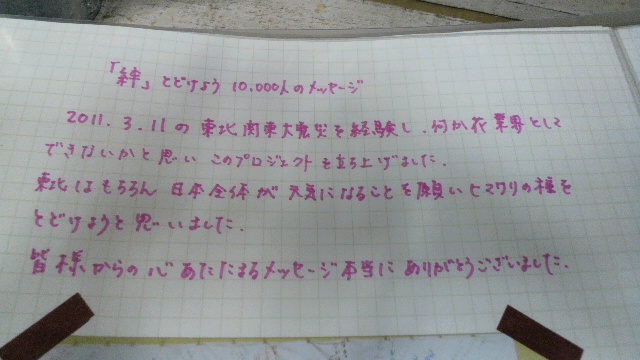 「絆」とどけよう 10,000人のメッセージ
2011.3.11の東北関東大震災を経験し、何か花業界として
できないかと思い このプロジェクトを立ち上げました。
東北はもちろん 日本全体が元気になることを願いヒマワリの種を
とどけようと思いました。
皆様からの心あたたまるメッセージ本当にありがとうございました。